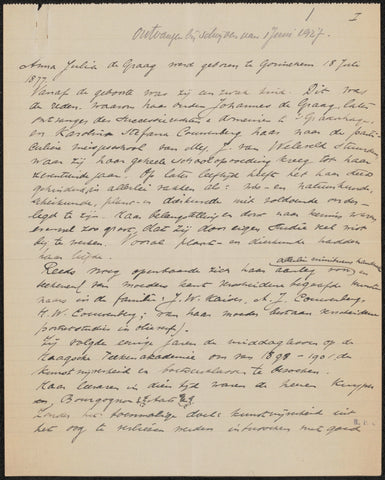 I
Ontvangen bij schrijven van 1 Juni 1927.
Anna Julia de Graag werd geboren te Gorinchem 18 Juli
1877.
Vanaf de geboorte was zij een zwak kind. Dit was
de reden, waarom haar ouders Johannes de Graag, later
ontvanger der Successierechten & Domeinen te 's-Gravenhage
en Karolina Stefana Couwenberg haar naar de parti-
culiere meisjesschool van Mej. J. van Welsveld stuurden,
waar zij haar geheele schoolopvoeding kreeg tot haar
zeventiende jaar. Op later leeftijd heeft het haar dikwijls
gehinderd, in allerlei vakken als: nde- en natuurkunde,
scheikunde, plant- en dierkunde niet voldoende onder-
legd te zijn. Haar belangstelling en dorst naar kennis waren
evenwel zoo groot, dat zij door eigen studie veel wist
bij te werken. Vooral plant- en dierkunde hadden
haar liefde.
Reeds vroeg openbaarde zich haar aanleg voor allerlei
teekenen van moeders kant verscheidene begaafde kunste-
naars in de familie: J.W. Kaiser, A.J. Couwenberg,
H.W. Couwenberg; van haar moeder bestaan verscheidene
portretstudies in olieverf).
Zij volgde eenige jaren de middaglessen op de
Haagsche Teekenakademie om van 1898 - 1901 de
kunstnijverheid en te bezoeken.
Haar leeraren in dien tijd waren de heeren
en, Bourgognon
Zonder het toenmalige doel: kunstnijverheid uit
het oog te verliezen werden intusschen met goed